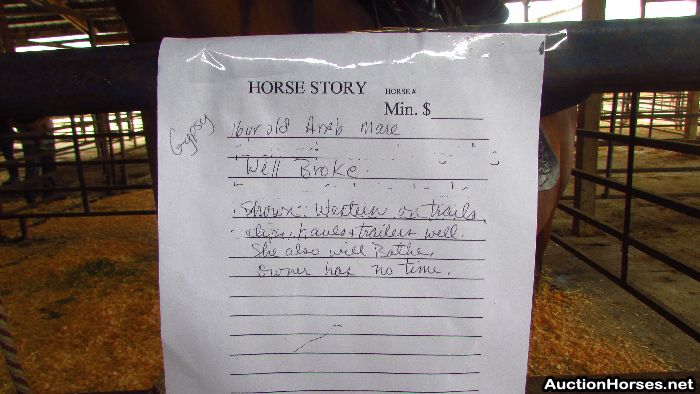 HORSE STORY
HORSE #
Min. $
Gypsy
16 yr old Arab Mare
Well Broke.
Shown: Western on trails,
hauls & trailers well.
She also will Bathe,
Owner has no time.
AuctionHorses.net